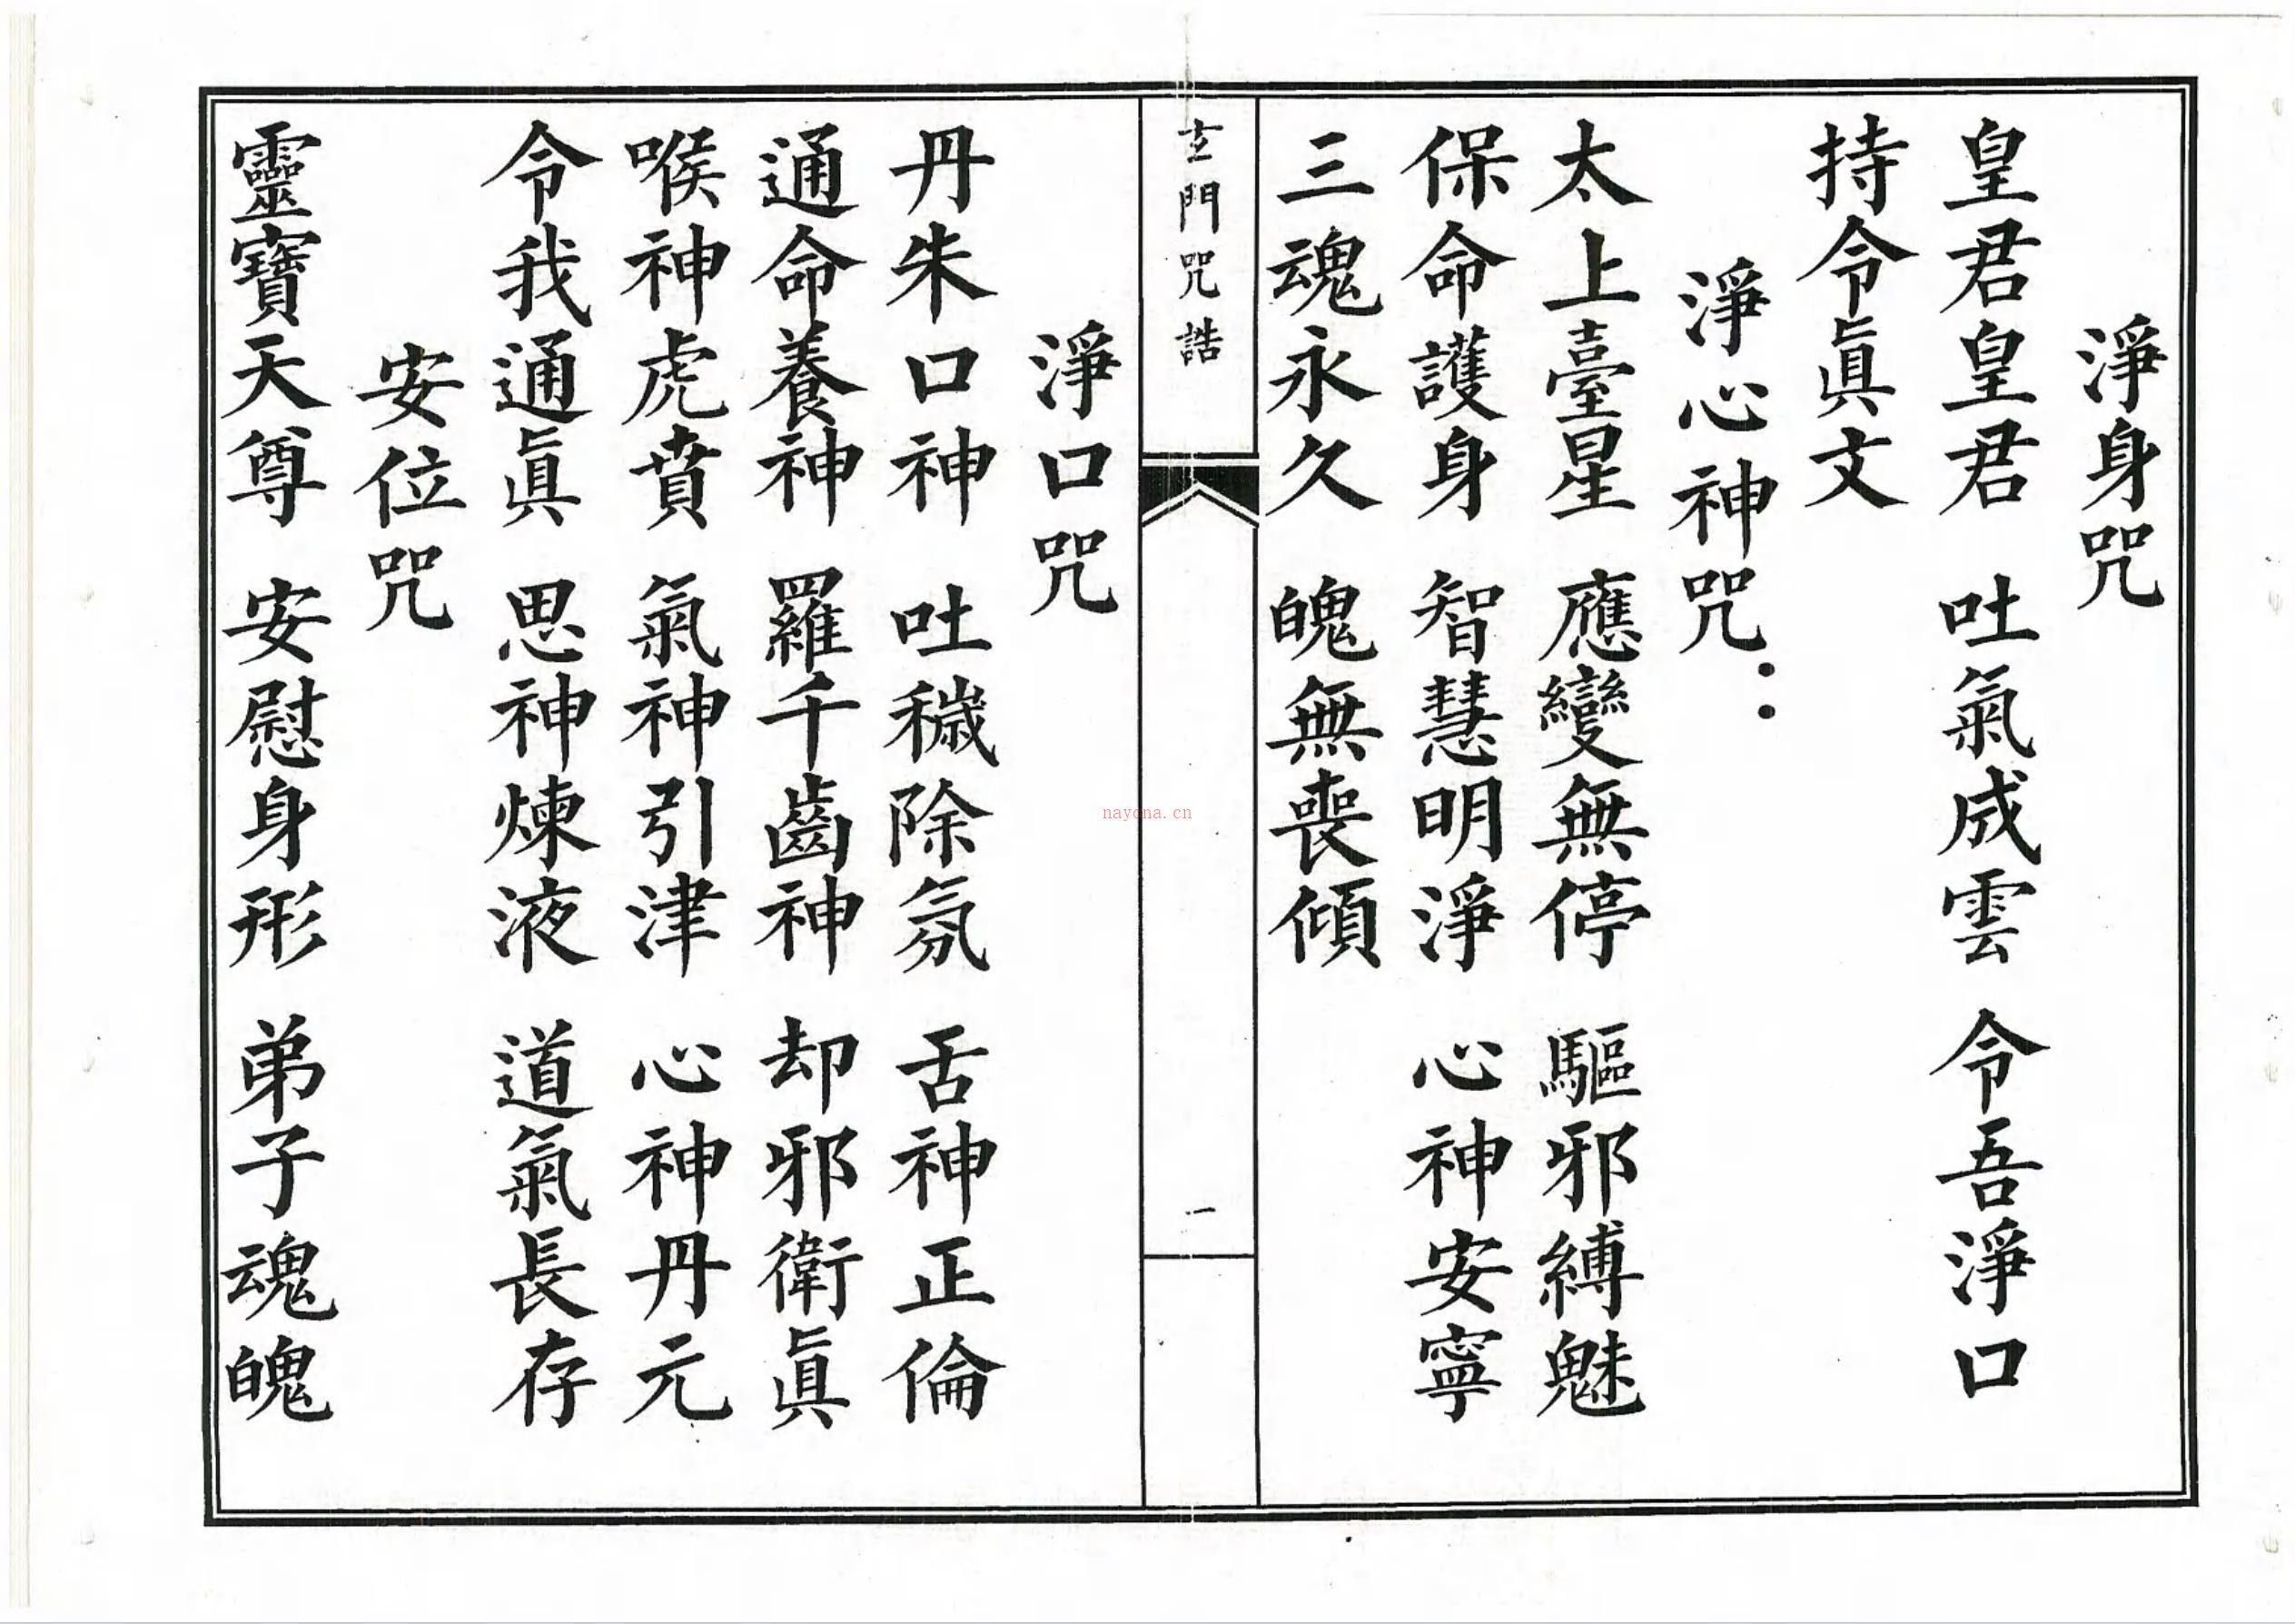 淨身咒
皇君皇君 吐氣成雲 令吾淨口
持令眞文
淨心神咒：
太上臺星 應變無停 驅邪縛魅
保命護身 智慧明淨 心神安寧
三魂永久 魄無喪傾
玄門咒誥
一
淨口咒
丹朱口神 吐穢除氛 舌神正倫
通命養神 羅千齒神 却邪衛眞
喉神虎賁 氣神引津 心神丹元
令我通眞 思神煉液 道氣長存
安位咒
靈寶天尊 安慰身形 弟子魂魄
nayona.cn